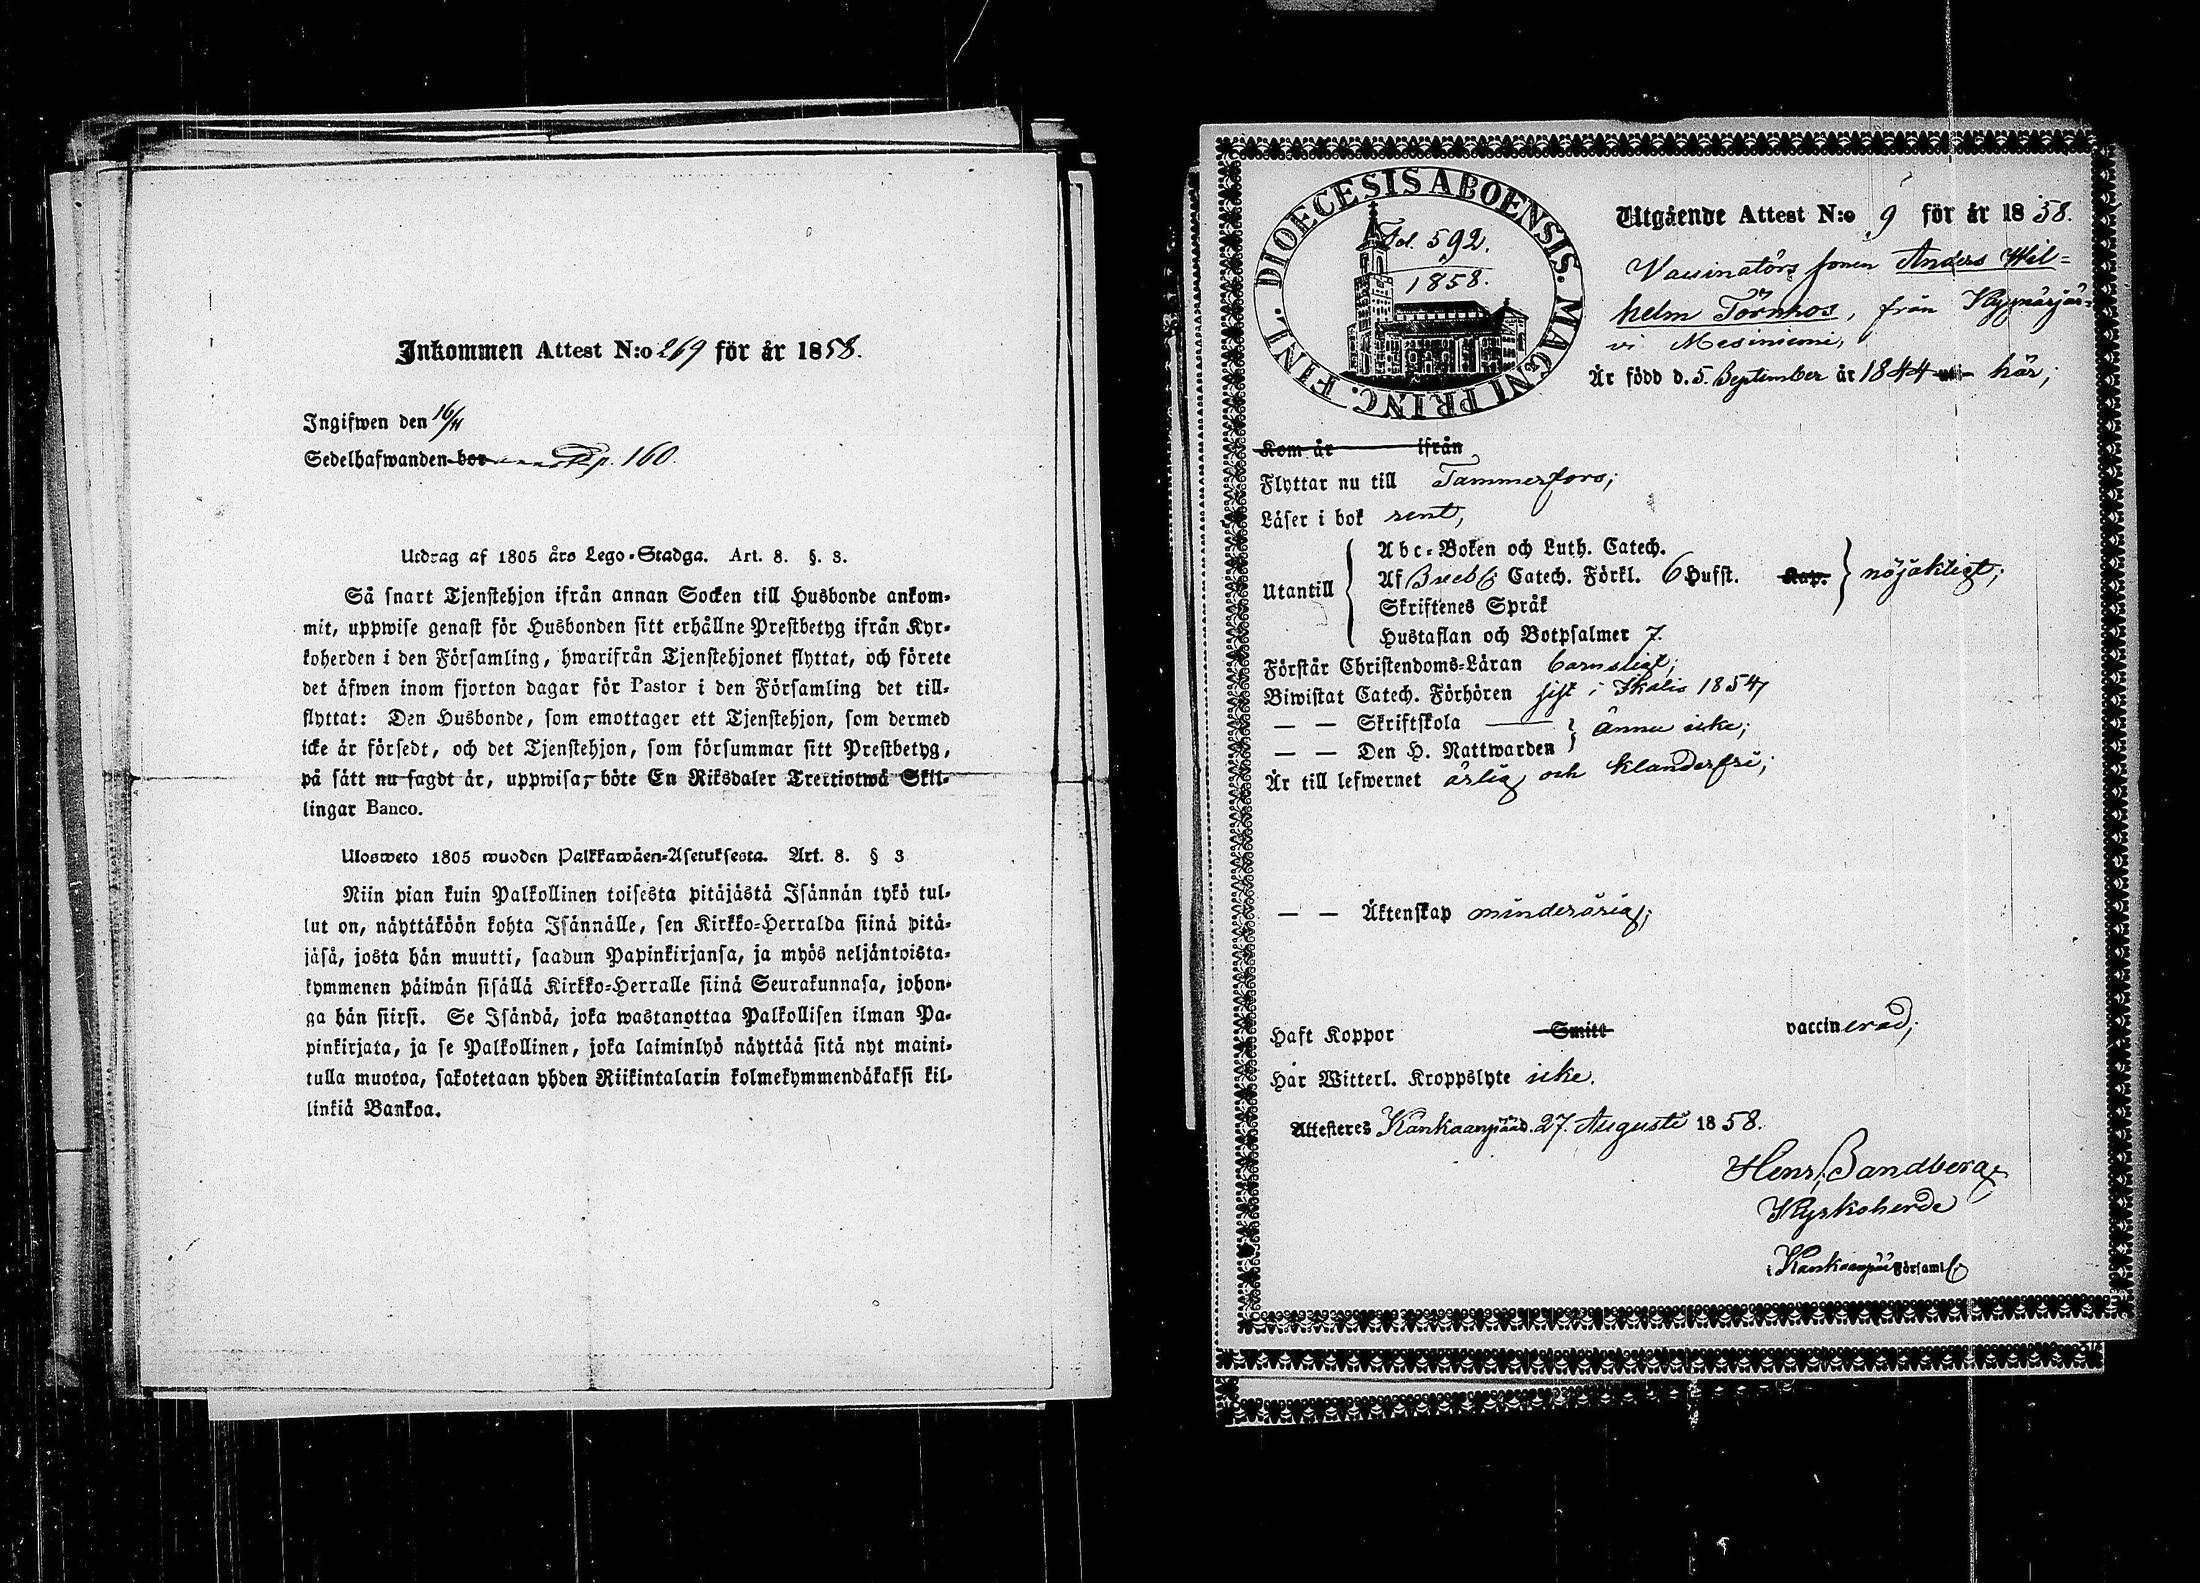 Inkommen Attest N:o 269 för år 1858.
Ingifwen den 16/11
Sedelhafwanden bor p. 160.
Utdrag af 1805 års Lego-Stadga. Art. 8. §. 3.
Så snart Tjenstehjon ifrån annan Socken till Husbonde ankom-
mit, uppwise genast för Husbonden sitt erhållne Prestbetyg ifrån Kyr-
koherden i den Församling, hwarifrån Tjenstehjonet flyttat, och förete
det äfwen inom fjorton dagar för Pastor i den Församling det till-
flyttat: Den Husbonde, som emottager ett Tjenstehjon, som dermed
icke är försedt, och det Tjenstehjon, som försummar sitt Prestbetyg,
på sätt nu sagdt är, uppwisa, böte En Riksdaler Trettiotwå Skil-
lingar Banco.
Ulosweto 1805 wuoden Palkkawäen-Asetuksesta. Art. 8. § 3
Niin pian kuin Palkollinen toisesta pitäjästä Isännän tykö tul-
lut on, näyttäköön kohta Isännälle, sen Kirkko-Herralda siinä pitä-
jäsä, josta hän muutti, saadun Papinkirjansa, ja myös neljäntoista-
kymmenen päiwän sisällä Kirkko-Herralle siinä Seurakunnasa, johon-
ga hän siirsi. Se Isändä, joka wastanottaa Palkollisen ilman Pa-
pinkirjata, ja se Palkollinen, joka laiminlyö näyttää sitä nyt maini-
tulla muotoa, sakotetaan yhden Riikintalarin kolmekymmendäkaksi kil-
linkiä Bankoa.
DIOECESIS ABOENSIS. MAGNI PRINC. FINL.
Fol. 592.
1858.
Utgående Attest N:o 9 för år 1858.
Vaccinatörs sonen Anders Wil=
helm Törnroos, från Kyynärjär=
vi
Är född d. 5. September år 1844 här;
Kom år ifrån
Flyttar nu till Tammerfors;
Läser i bok rent,
Utantill
Abc-Boken och Luth. Catech.
Af Catech. Förkl. 6 Hufst. Kap.
nöjaktigt;
Skriftenes Språk
Hustaflan och Botpsalmer 7.
Förstår Christendoms-Läran barnsligt;
Biwistat Catech. Förhören sist i Ikalis 1854,
— — Skriftskola
ännu icke;
— — Den H. Nattwarden
Är till lefwernet ärlig och klanderfri;
— — Äktenskap minderårig;
Haft Koppor Smitt vaccinerad;
Har Witterl. Kroppslyte icke.
Attesteras Kankaanpää d. 27. Augusti 1858.
Henr. Sandberg
Kyrkoherde
i Kankaanpää Församl.